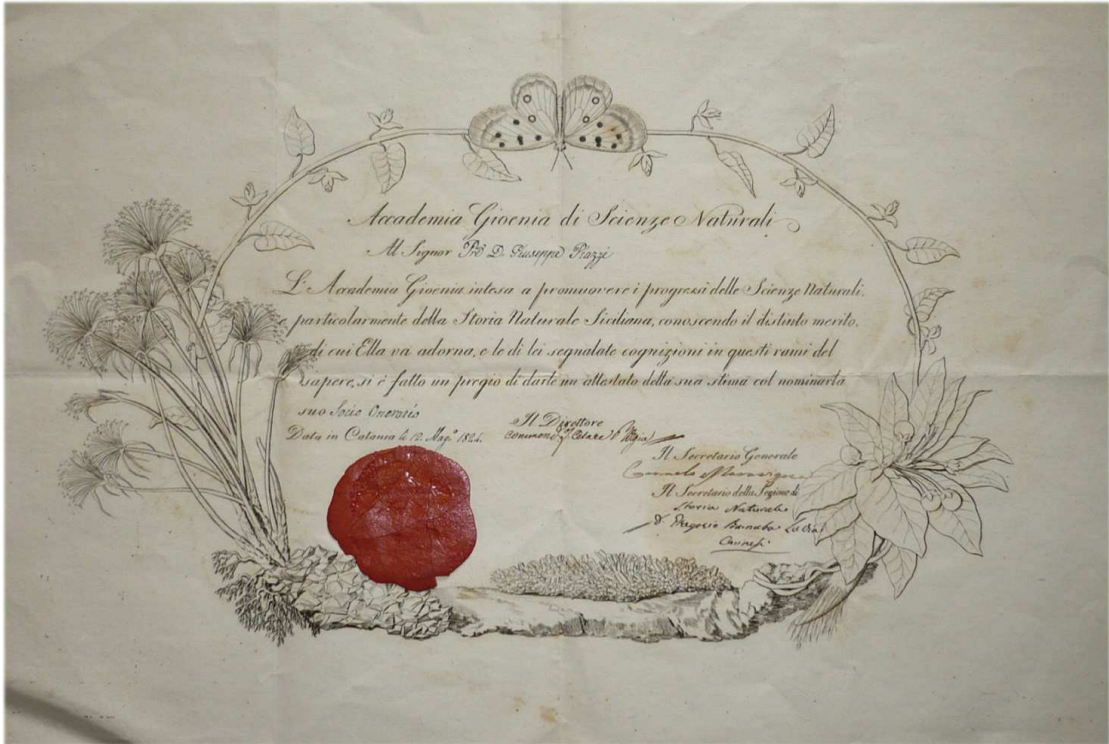 Accademia Gioenia di Scienze Naturali
Al Signor Pre D. Giuseppe Piazzi
L'Accademia Gioenia intesa a promuovere i progressi delle Scienze Naturali,
e particolarmente della Storia Naturale Siciliana, conoscendo il distinto merito,
di cui Ella va adorna, e le di lei segnalate cognizioni in questi rami del
sapere, si è fatto un pregio di darle un attestato della sua stima col nominarla
suo Socio Onorario
Data in Catania li 12. Magº 1824.
Il Direttore
Cesare
Il Secretario Generale
Carmelo Maravigna
Il Secretario della Sezione di
Storia Naturale
Barnaba La Via